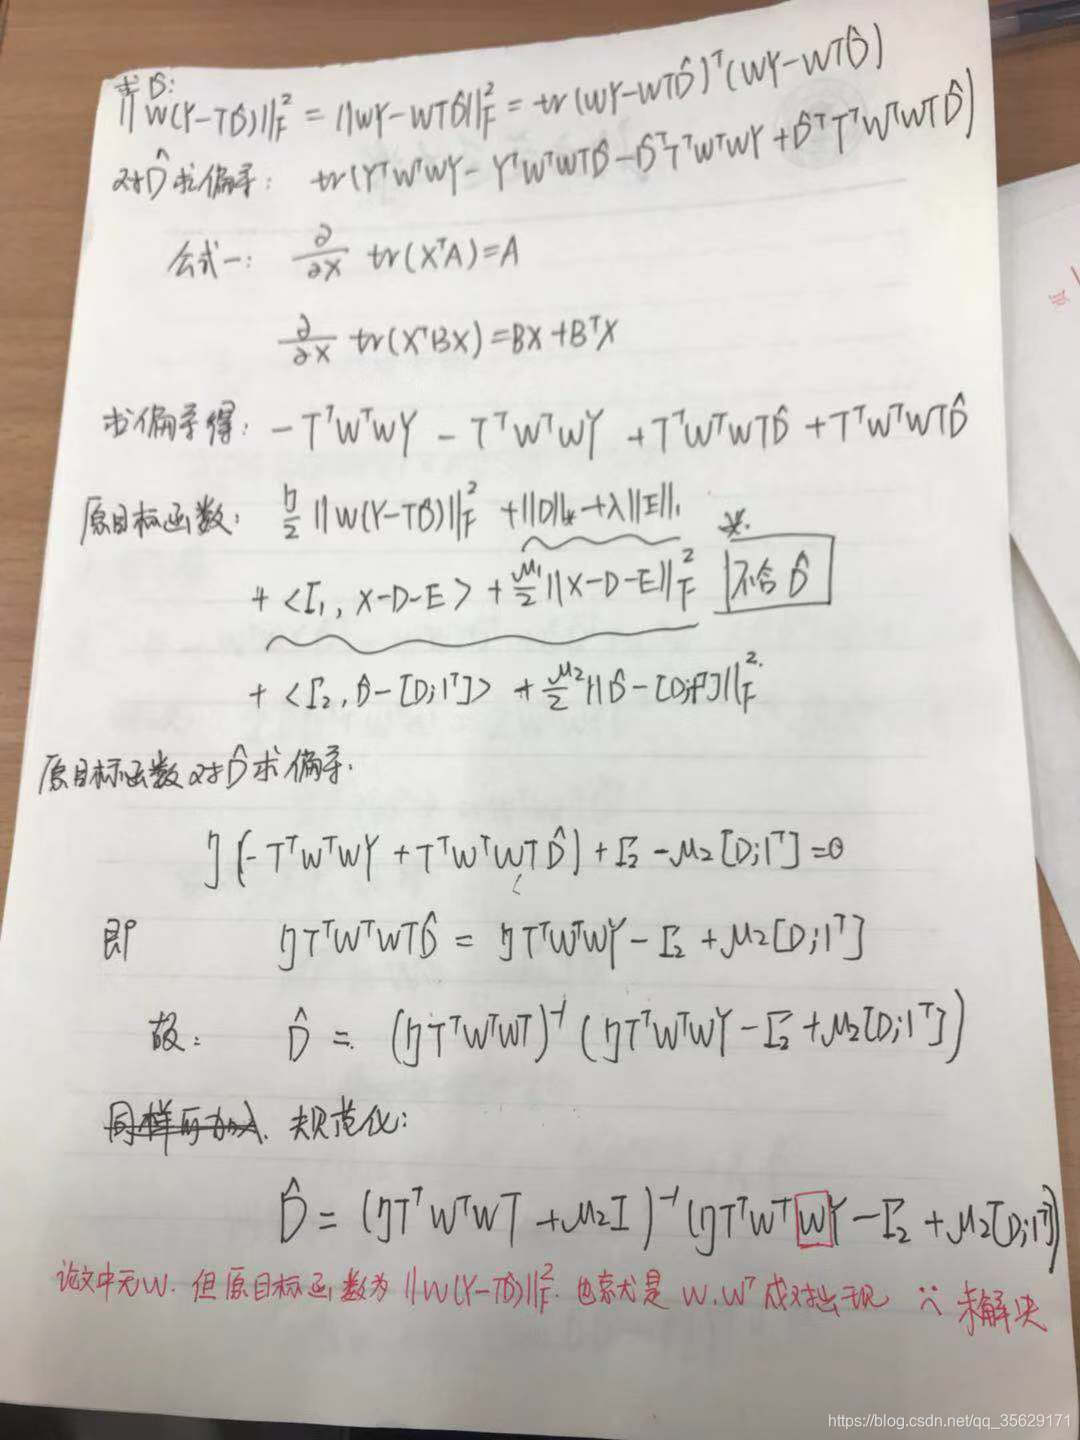 求D̂:
||W(Y-TD̂)||_F^2 = ||WY-WTD̂||_F^2 = tr(WY-WTD̂)^T(WY-WTD̂)
对D̂求偏导: tr(Y^TW^TWY - Y^TW^TWTD̂ - D̂^TT^TW^TWY + D̂^TT^TW^TWTD̂)
公式一: ∂/∂X tr(X^TA)=A
∂/∂X tr(X^TBX)=BX+B^TX
求偏导得: -T^TW^TWY - T^TW^TWY + T^TW^TWTD̂ + T^TW^TWTD̂
原目标函数: η/2 ||W(Y-TD̂)||_F^2 + ||D||_* + λ||E||_1
+ <Γ_1, X-D-E> + μ_1/2 ||X-D-E||_F^2 *. 不含D̂
+ <Γ_2, D̂-[D;1^T]> + μ_2/2 ||D̂-[D;1^T]||_F^2.
原目标函数对D̂求偏导.
η(-T^TW^TWY + T^TW^TWTD̂) + Γ_2 - μ_2[D;1^T]=0
即 ηT^TW^TWTD̂ = ηT^TW^TWY - Γ_2 + μ_2[D;1^T]
故: D̂ = (ηT^TW^TWT)^-1 (ηT^TW^TWY - Γ_2 + μ_2[D;1^T])
规范化:
D̂ = (ηT^TW^TWT + μ_2I)^-1 (ηT^TW^TWY - Γ_2 + μ_2[D;1^T])
论文中无W. 但原目标函数为||W(Y-TD̂)||_F^2. 也就是W.W^T成对出现 未解决
https://blog.csdn.net/qq_35629171